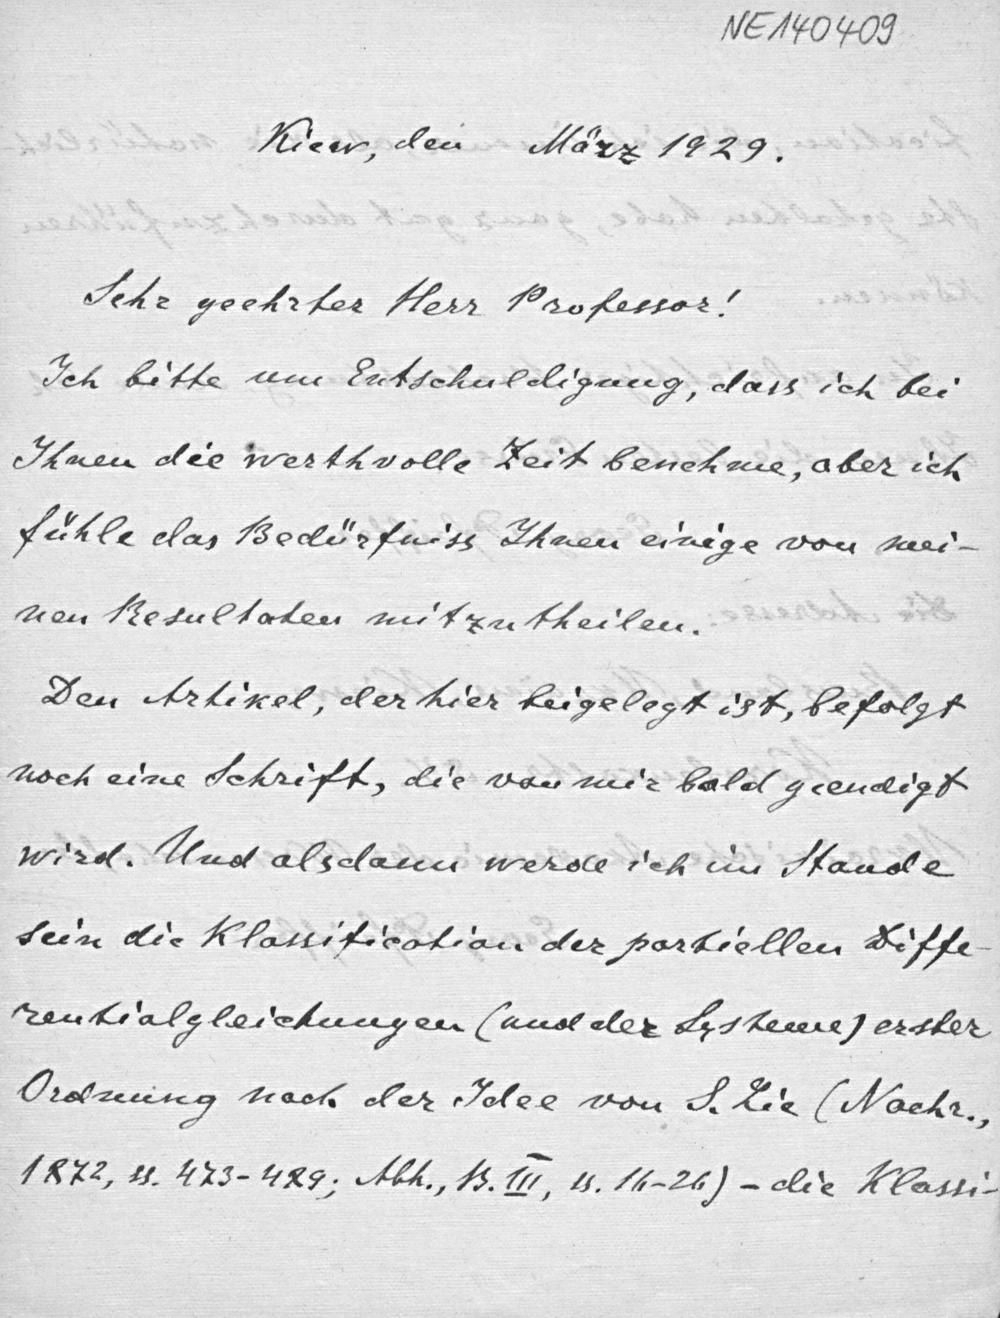 NE140409
Kiew, den März 1929.
Sehr geehrter Herr Professor!
Ich bitte um Entschuldigung, dass ich bei
Ihnen die werthvolle Zeit benehme, aber ich
fühle das Bedürfniss Ihnen einige von mei-
nen Resultaten mitzutheilen.
Den Artikel, der hier beigelegt ist, befolgt
noch eine Schrift, die von mir bald geendigt
wird. Und alsdann werde ich im Stande
sein die Klassification der partiellen Diffe-
rentialgleichungen (und der Systeme) erster
Ordnung nach der Idee von S. Lie (Nachr.,
1872, ss. 473-489; Abh., B. III, ss. 16-26) – die Klassi-